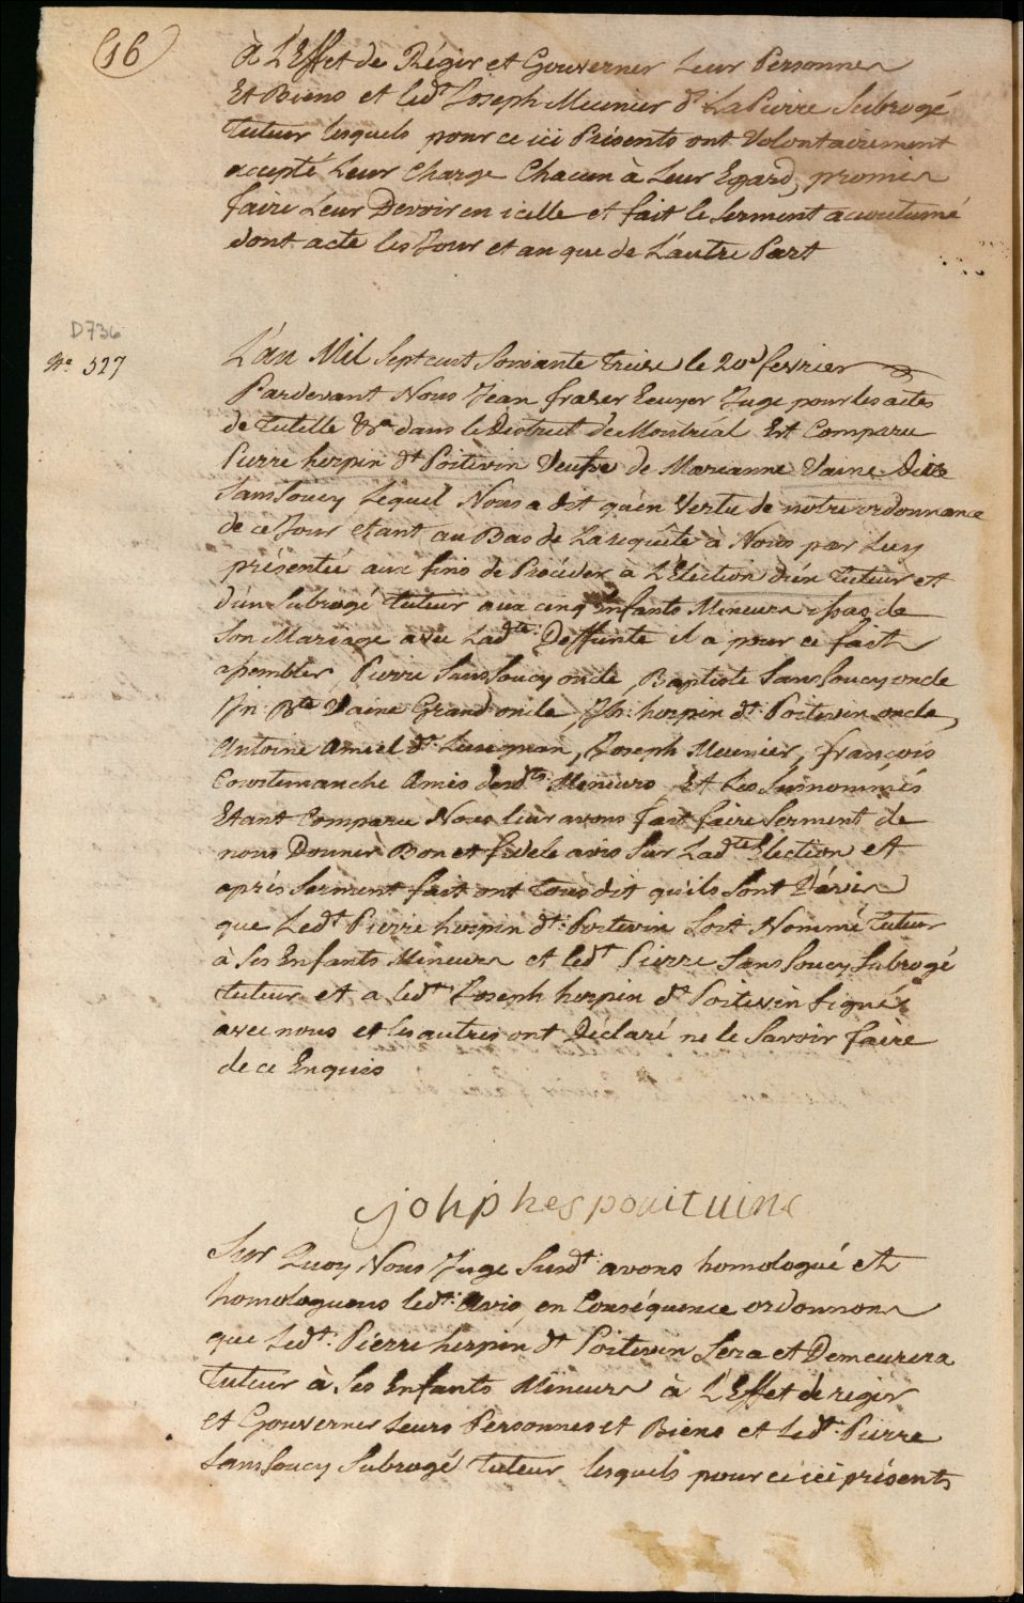 16
à L'Effet de Régir et Gouverner Leur Personnes
Et Biens et led.t Joseph Meunier d.t LaPierre Subrogé
Tuteur lesquels pour ce ici Présents ont Volontairement
accepté Leur Charge Chacun à Leur Egard, promis
faire Leur Devoir en icelle et fait le Serment accoutumé
dont acte les Jour et an que de L'autre Part
D736
N.o 527
L'an Mil Sept cent Soixante Treize le 20.e fevrier
Pardevant Nous Jean fraser Ecuyer Juge pour les actes
de Tutelle &.a dans le District de Montréal Est Comparu
Pierre herpin d.t Poitevin Veufve de Marianne Vaine Dite
Sans Soucy Lequel Nous a dit qu'en Vertu de notre ordonnance
de ce Jour etant au Bas de La requête à Nous par Luy
présentée aux fins de Procéder a L'Election d'un Tuteur et
d'un Subrogé Tuteur aux cinq Enfants Mineurs issus de
Son Mariage avec Lad.te Deffunte il a pour ce fait
assembler Pierre Sans Soucy oncle, Baptiste Sans Soucy oncle
Jn. B.te Vaine Grand oncle, Jh. herpin d.t Poitevin oncle,
Antoine Amiel d.t Lusignan, Joseph Meunier, françois
Courtemanche Amis desd.ts Mineurs, Et Les Susnommés
Etant Comparu Nous leur avons fait faire Serment de
nous Donner Bon et fidele avis Sur Lad.te Election et
après Serment fait ont Tous dit qu'ils Sont D'avis
que Led.t Pierre herpin d.t Poitevin Soit Nommé Tuteur
à Ses Enfants Mineurs et led.t Pierre Sans Soucy Subrogé
Tuteur et a led.t Joseph herpin d.t Poitevin Signé
avec nous et les autres ont Déclaré ne le Savoir faire
de ce Enquis
johp hes poaituine
Sur Quoy Nous Juge Susd.t avons homologué et
homologuons led.t Avis, en Conséquence ordonnons
que Led.t Pierre herpin d.t Poitevin Sera et Demeurera
Tuteur à Ses Enfants Mineurs à L'Effet de regir
et Gouverner Leurs Personnes et Biens et Led.t Pierre
Sans Soucy Subrogé Tuteur lesquels pour ce ici présents